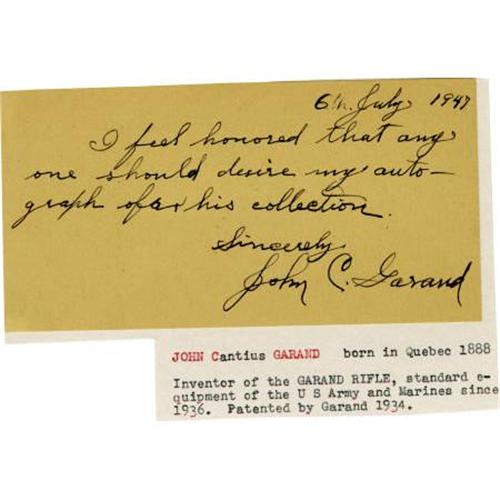 6th. July 1947
I feel honored that any
one should desire my auto-
graph for his collection.
Sincerely
John C. Garand
JOHN Cantius GARAND born in Quebec 1888
Inventor of the GARAND RIFLE, standard e-
quipment of the U S Army and Marines since
1936. Patented by Garand 1934.